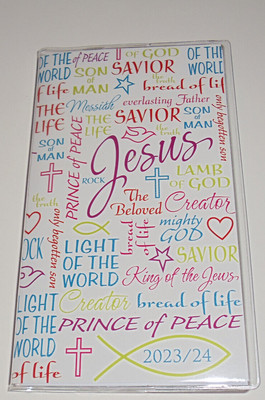 OF THE
WORLD
of PEACE
of GOD
SAVIOR
OF THE
WORLD
of life
SON
OF
MAN
the
truth
bread of life
THE
LIFE
Messiah
everlasting Father
only begotten son
SON
OF
MAN
the
truth
SAVIOR
the
truth
SON
OF
MAN
THE
LIFE
PRINCE of PEACE
Jesus
ROCK
LAMB
OF GOD
the
truth
only begotten son
of life
The
Beloved
Creator
bread
of life
mighty
GOD
ROCK
LIGHT
OF THE
WORLD
SAVIOR
King of the Jews
LIGHT
OF THE
WORLD
Creator
bread of life
PRINCE of PEACE
of life
2023/24